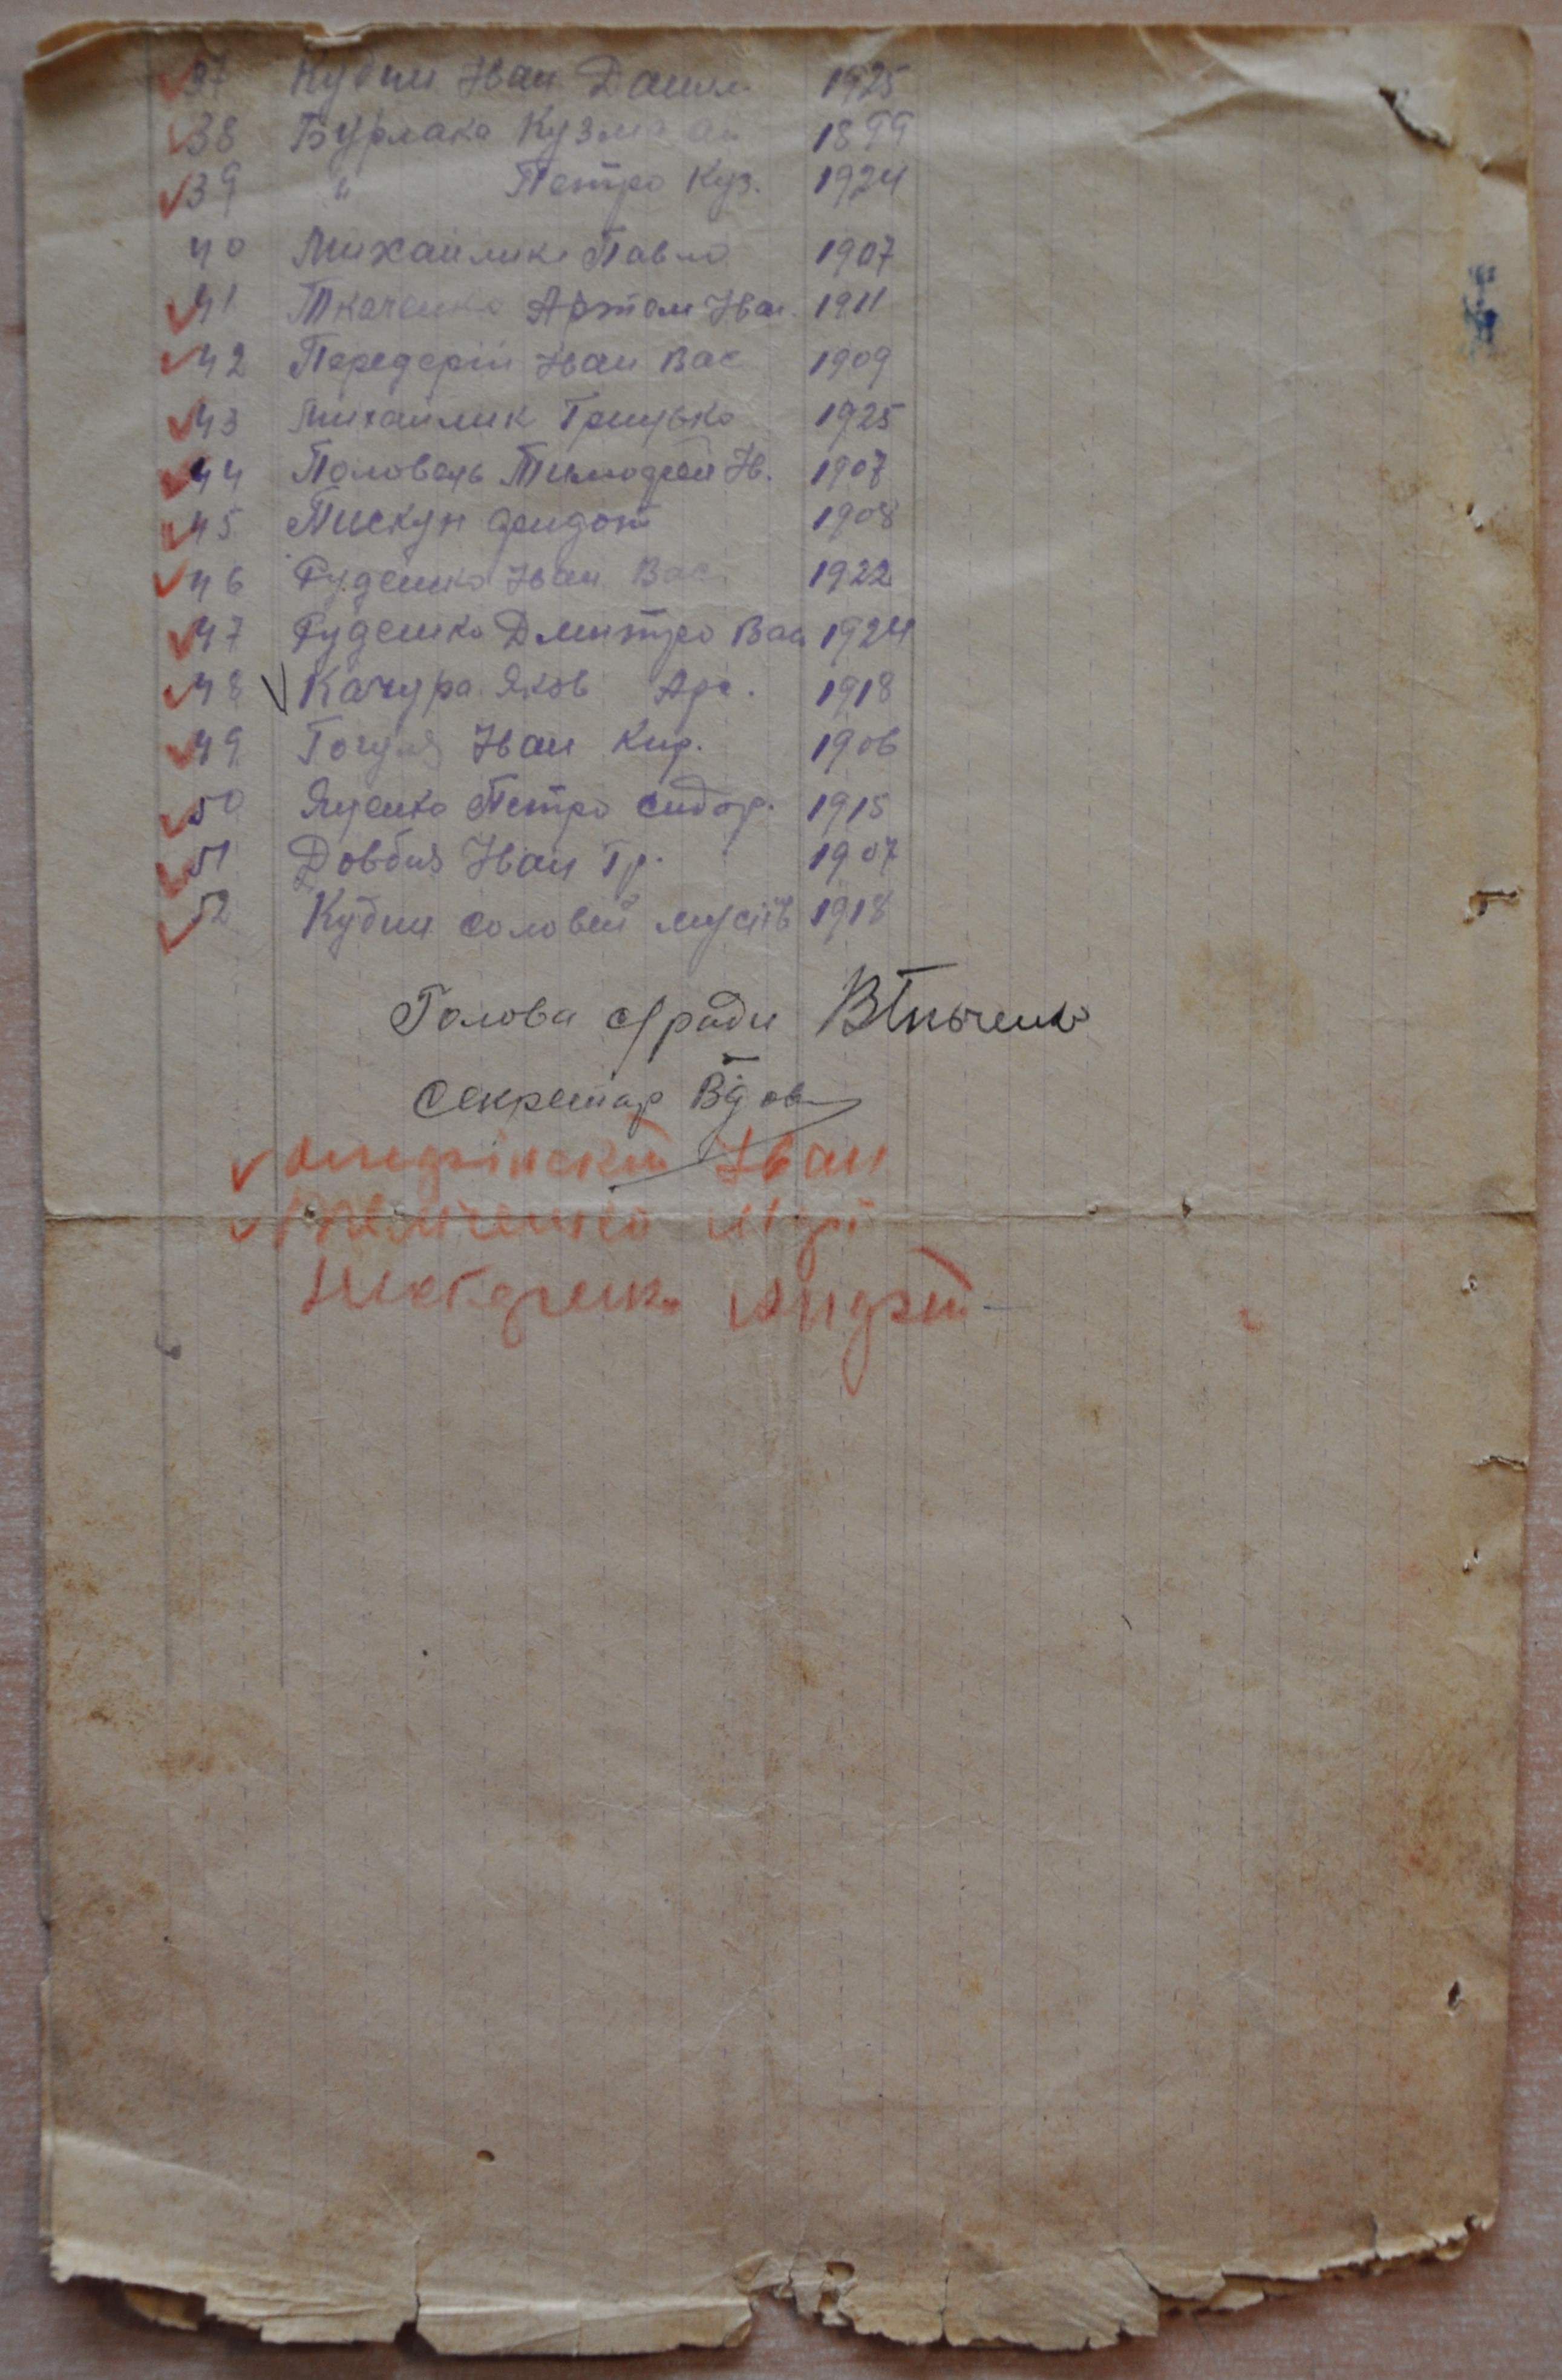 37 Кубни Іван Данил. 1925
38 Бурлака Кузма 1899
39 " Петро Куз. 1924
40 Михайлик Павло 1907
41 Ткаченко Артем Іван. 1911
42 Передерій Іван Вас 1909
43 Михайлик Грицько 1925
44 Половець Тимофей Ів. 1907
45 Пискун Федот 1908
46 Руденко Іван Вас. 1922
47 Руденко Дмитро Вас 1924
48 Качура Яков Ар. 1918
49 Гогуля Іван Кир. 1906
50 Яценко Петро Сидор. 1915
51 Довбня Іван Гр. 1907
52 Кубни Соловей Мусіїв 1918
Голова с/ради ВТкаченко
Секретар
Іван
Андрій